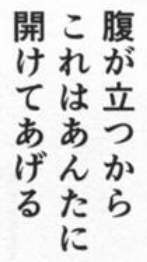 腹が立つから
これはあんたに
開けてあげる